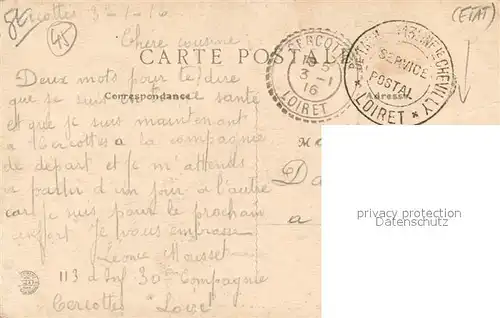 Cercottes 3-1-16
(ETAT)
45
Chere cousine
CARTE POSTALE
CERCOTTES
3 -1
16
LOIRET
SERVICE
POSTAL
CHEVILLY
* LOIRET *
Correspondance
Adresse
Deux mots pour te dire
que je suis en santé
et que je suis maintenant
a Cercottes a la compagnie
de départ et je m'attends
a partir d'un jour a l'autre
car je suis pour le prochain
renfort Je vous embrasse
Léonce Mousset
113 d Inf 30e Compagnie
Cercottes "Loire"
M
Da
a
privacy protection
Datenschutz